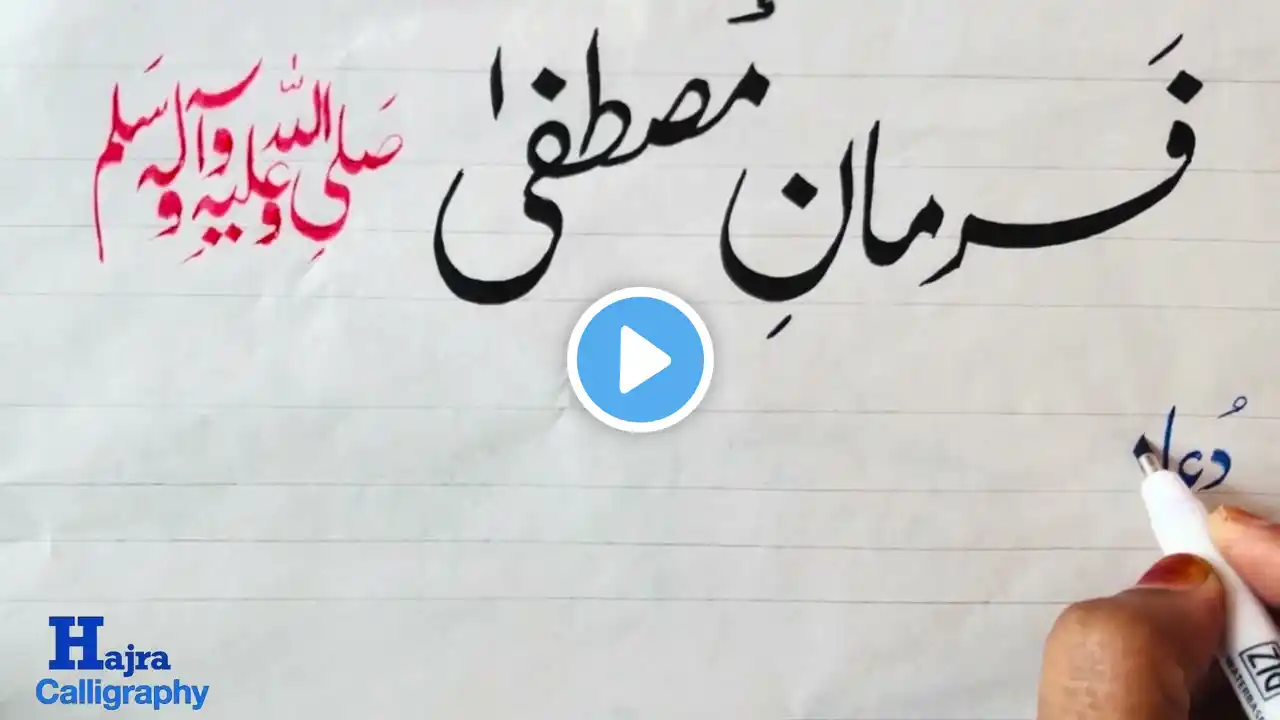 فَرمانِ مُصطفیٰ صَلیِ اللّٰہ وعلیہِ وآلہ وسَلم
دُعا
Hajra
Calligraphy
ZIG